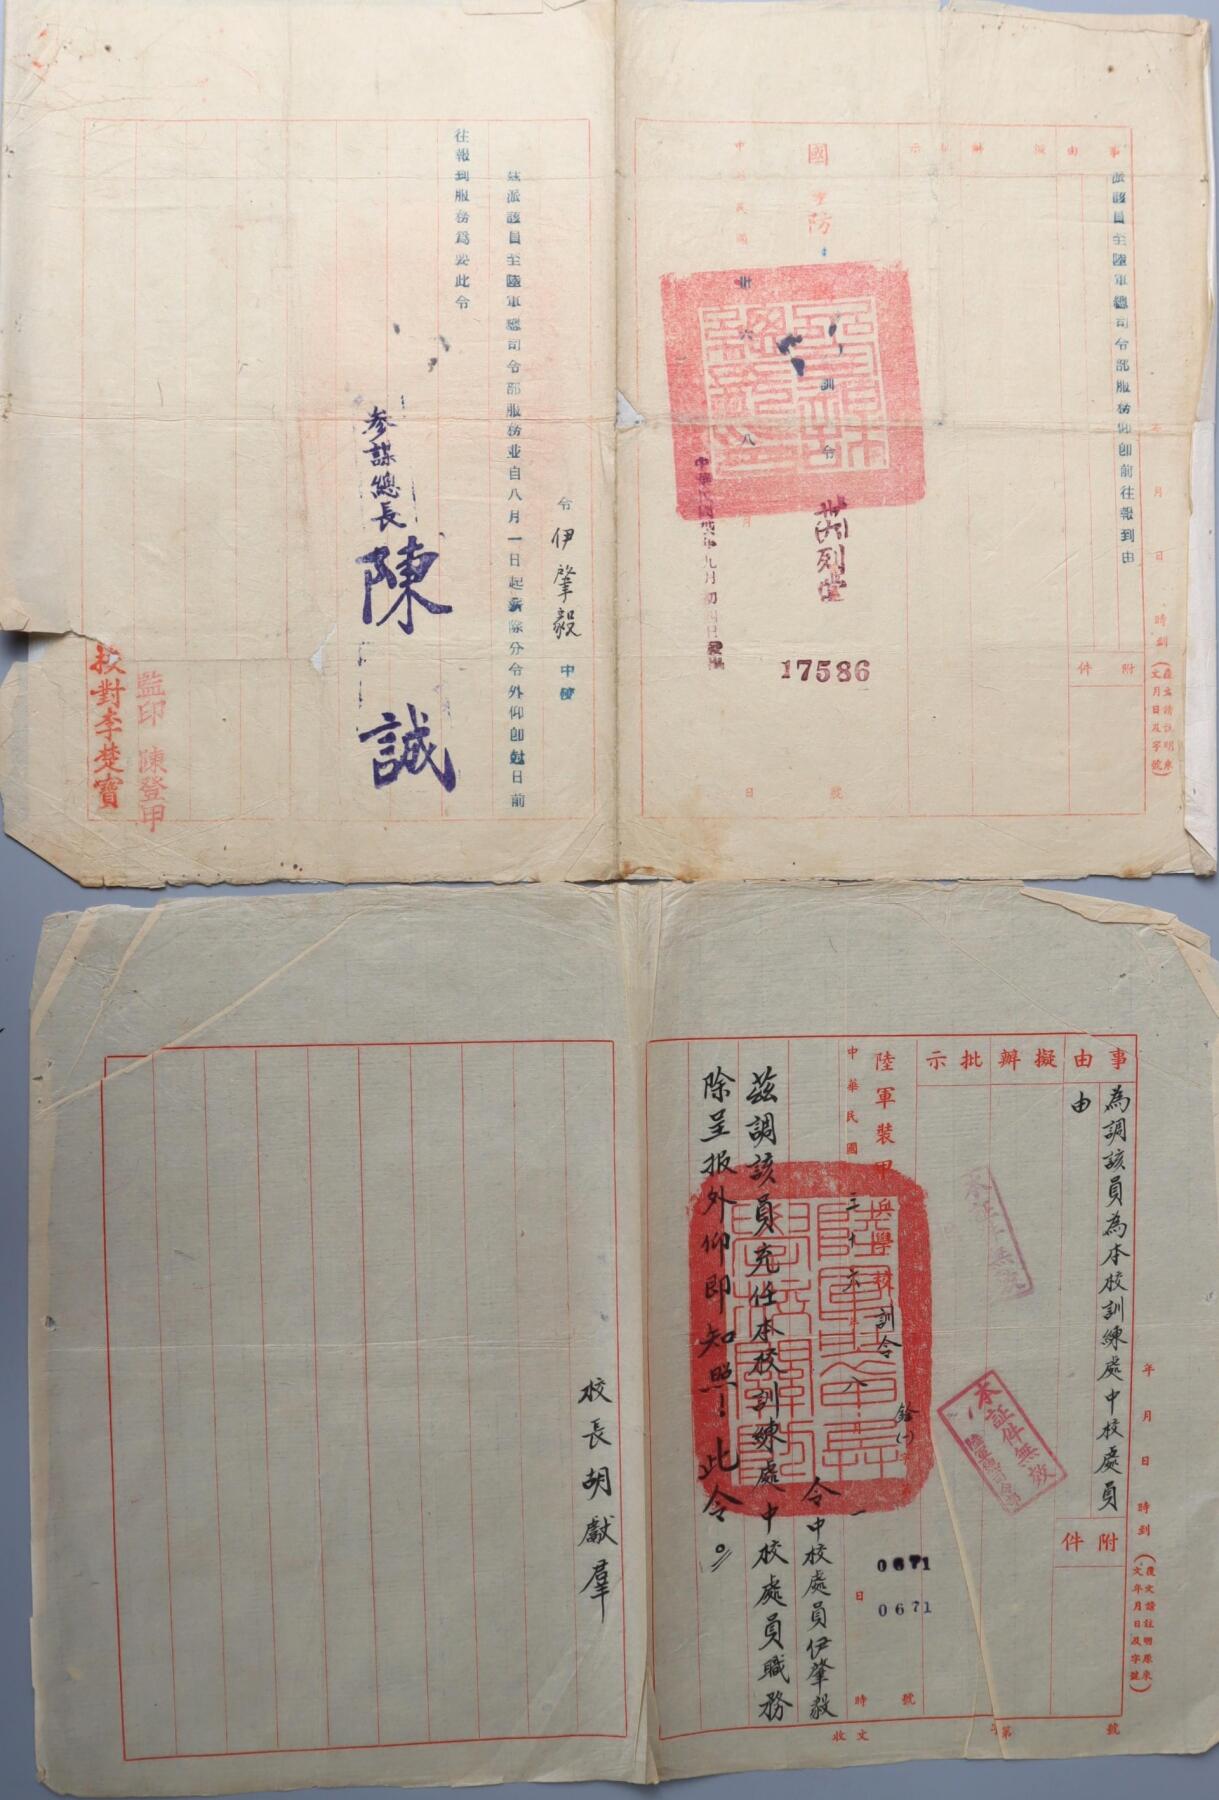 事由擬辦批示
派該員至陸軍總司令部服務仰即前往報到由
附件
年月日時到
(覆文請註明來文月日及字號)
國防部訓令
17586
號
中華民國卅六年八月日
令伊肇毅中校
茲派該員至陸軍總司令部服務並自八月一日起薪除分令外仰即尅日前
往報到服務為要此令
參謀總長陳誠
監印陳登甲
校對李楚寶
事由擬辦批示
為調該員為本校訓練處中校處員
由
附件
年月日時到
(覆文請註明原來文年月日及字號)
本証件無效
陸軍總司令部
陸軍裝甲兵學校訓令
0671
0671
號
中華民國三十六年八月一日時
收文字第號
令中校處員伊肇毅
茲調該員充任本校訓練處中校處員職務
除呈报外仰即知照！此令。
校長胡獻羣